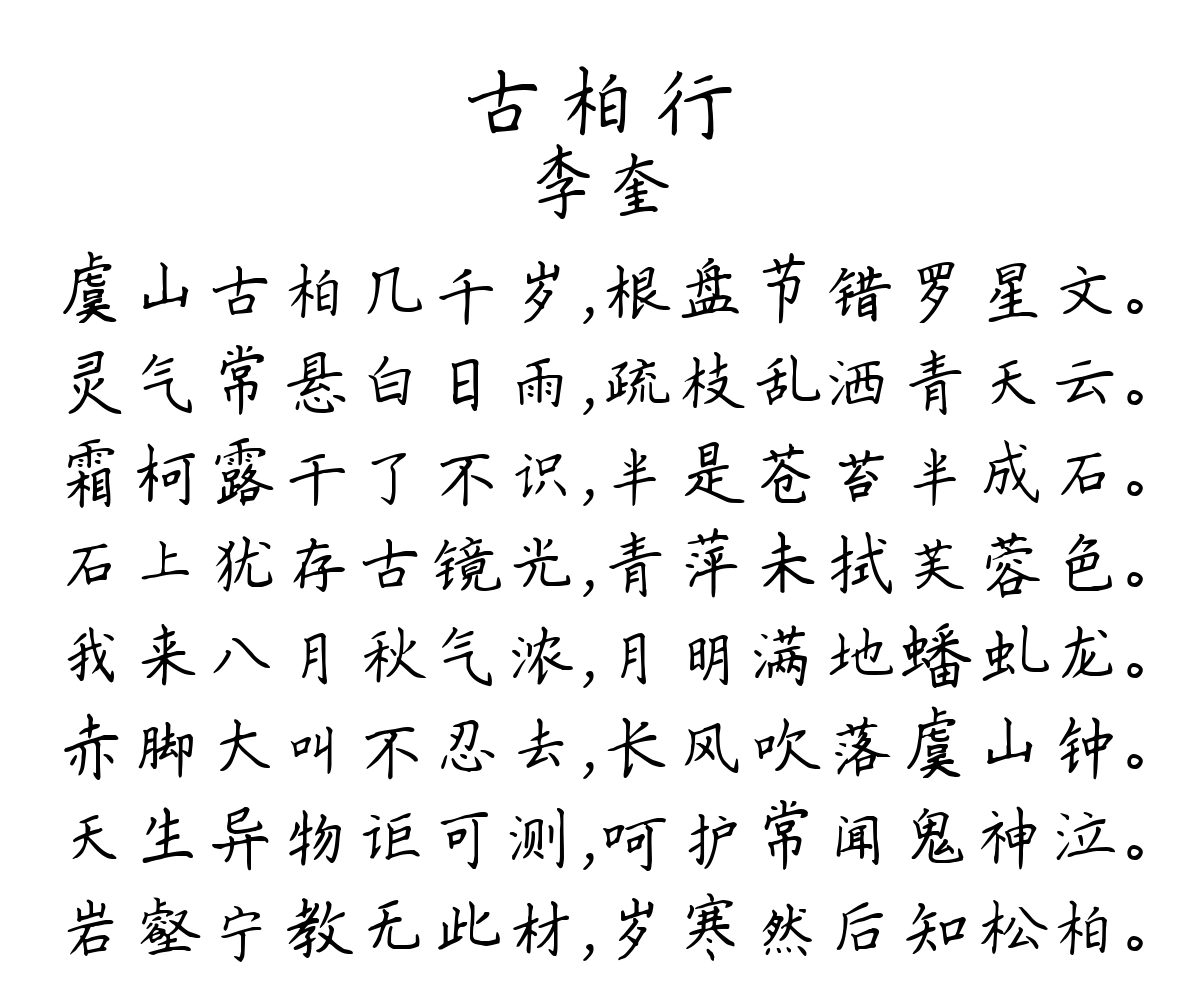 古柏行
李奎
虞山古柏几千岁,根盘节错罗星文。
灵气常悬白日雨,疏枝乱洒青天云。
霜柯露干了不识,半是苍苔半成石。
石上犹存古镜光,青萍未拭芙蓉色。
我来八月秋气浓,月明满地蟠虬龙。
赤脚大叫不忍去,长风吹落虞山钟。
天生异物讵可测,呵护常闻鬼神泣。
岩壑宁教无此材,岁寒然后知松柏。